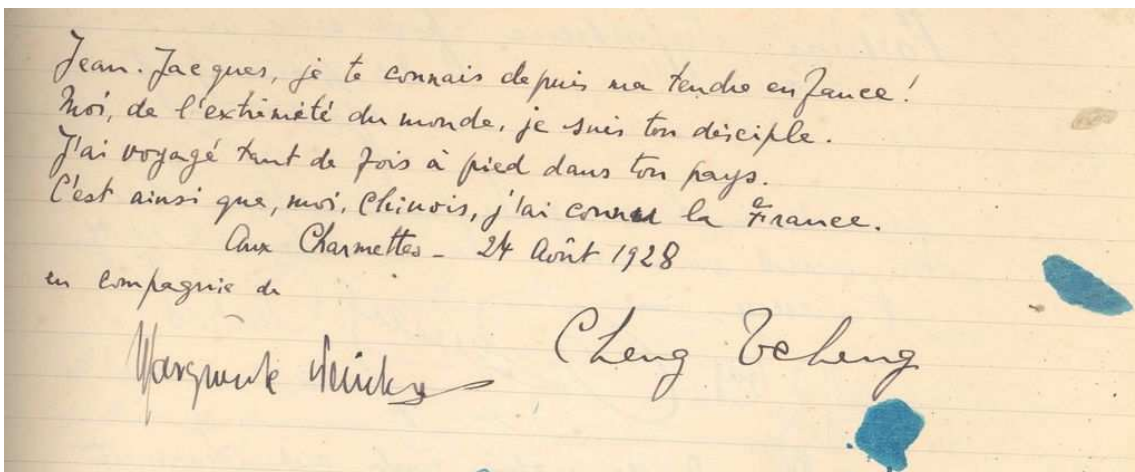 Jean-Jacques, je te connais depuis ma tendre enfance!
Moi, de l'extrémité du monde, je suis ton disciple.
J'ai voyagé tant de fois à pied dans ton pays.
C'est ainsi que, moi, Chinois, j'ai connu la France.
Aux Charmettes - 24 Août 1928
en compagnie de
Cheng Tcheng